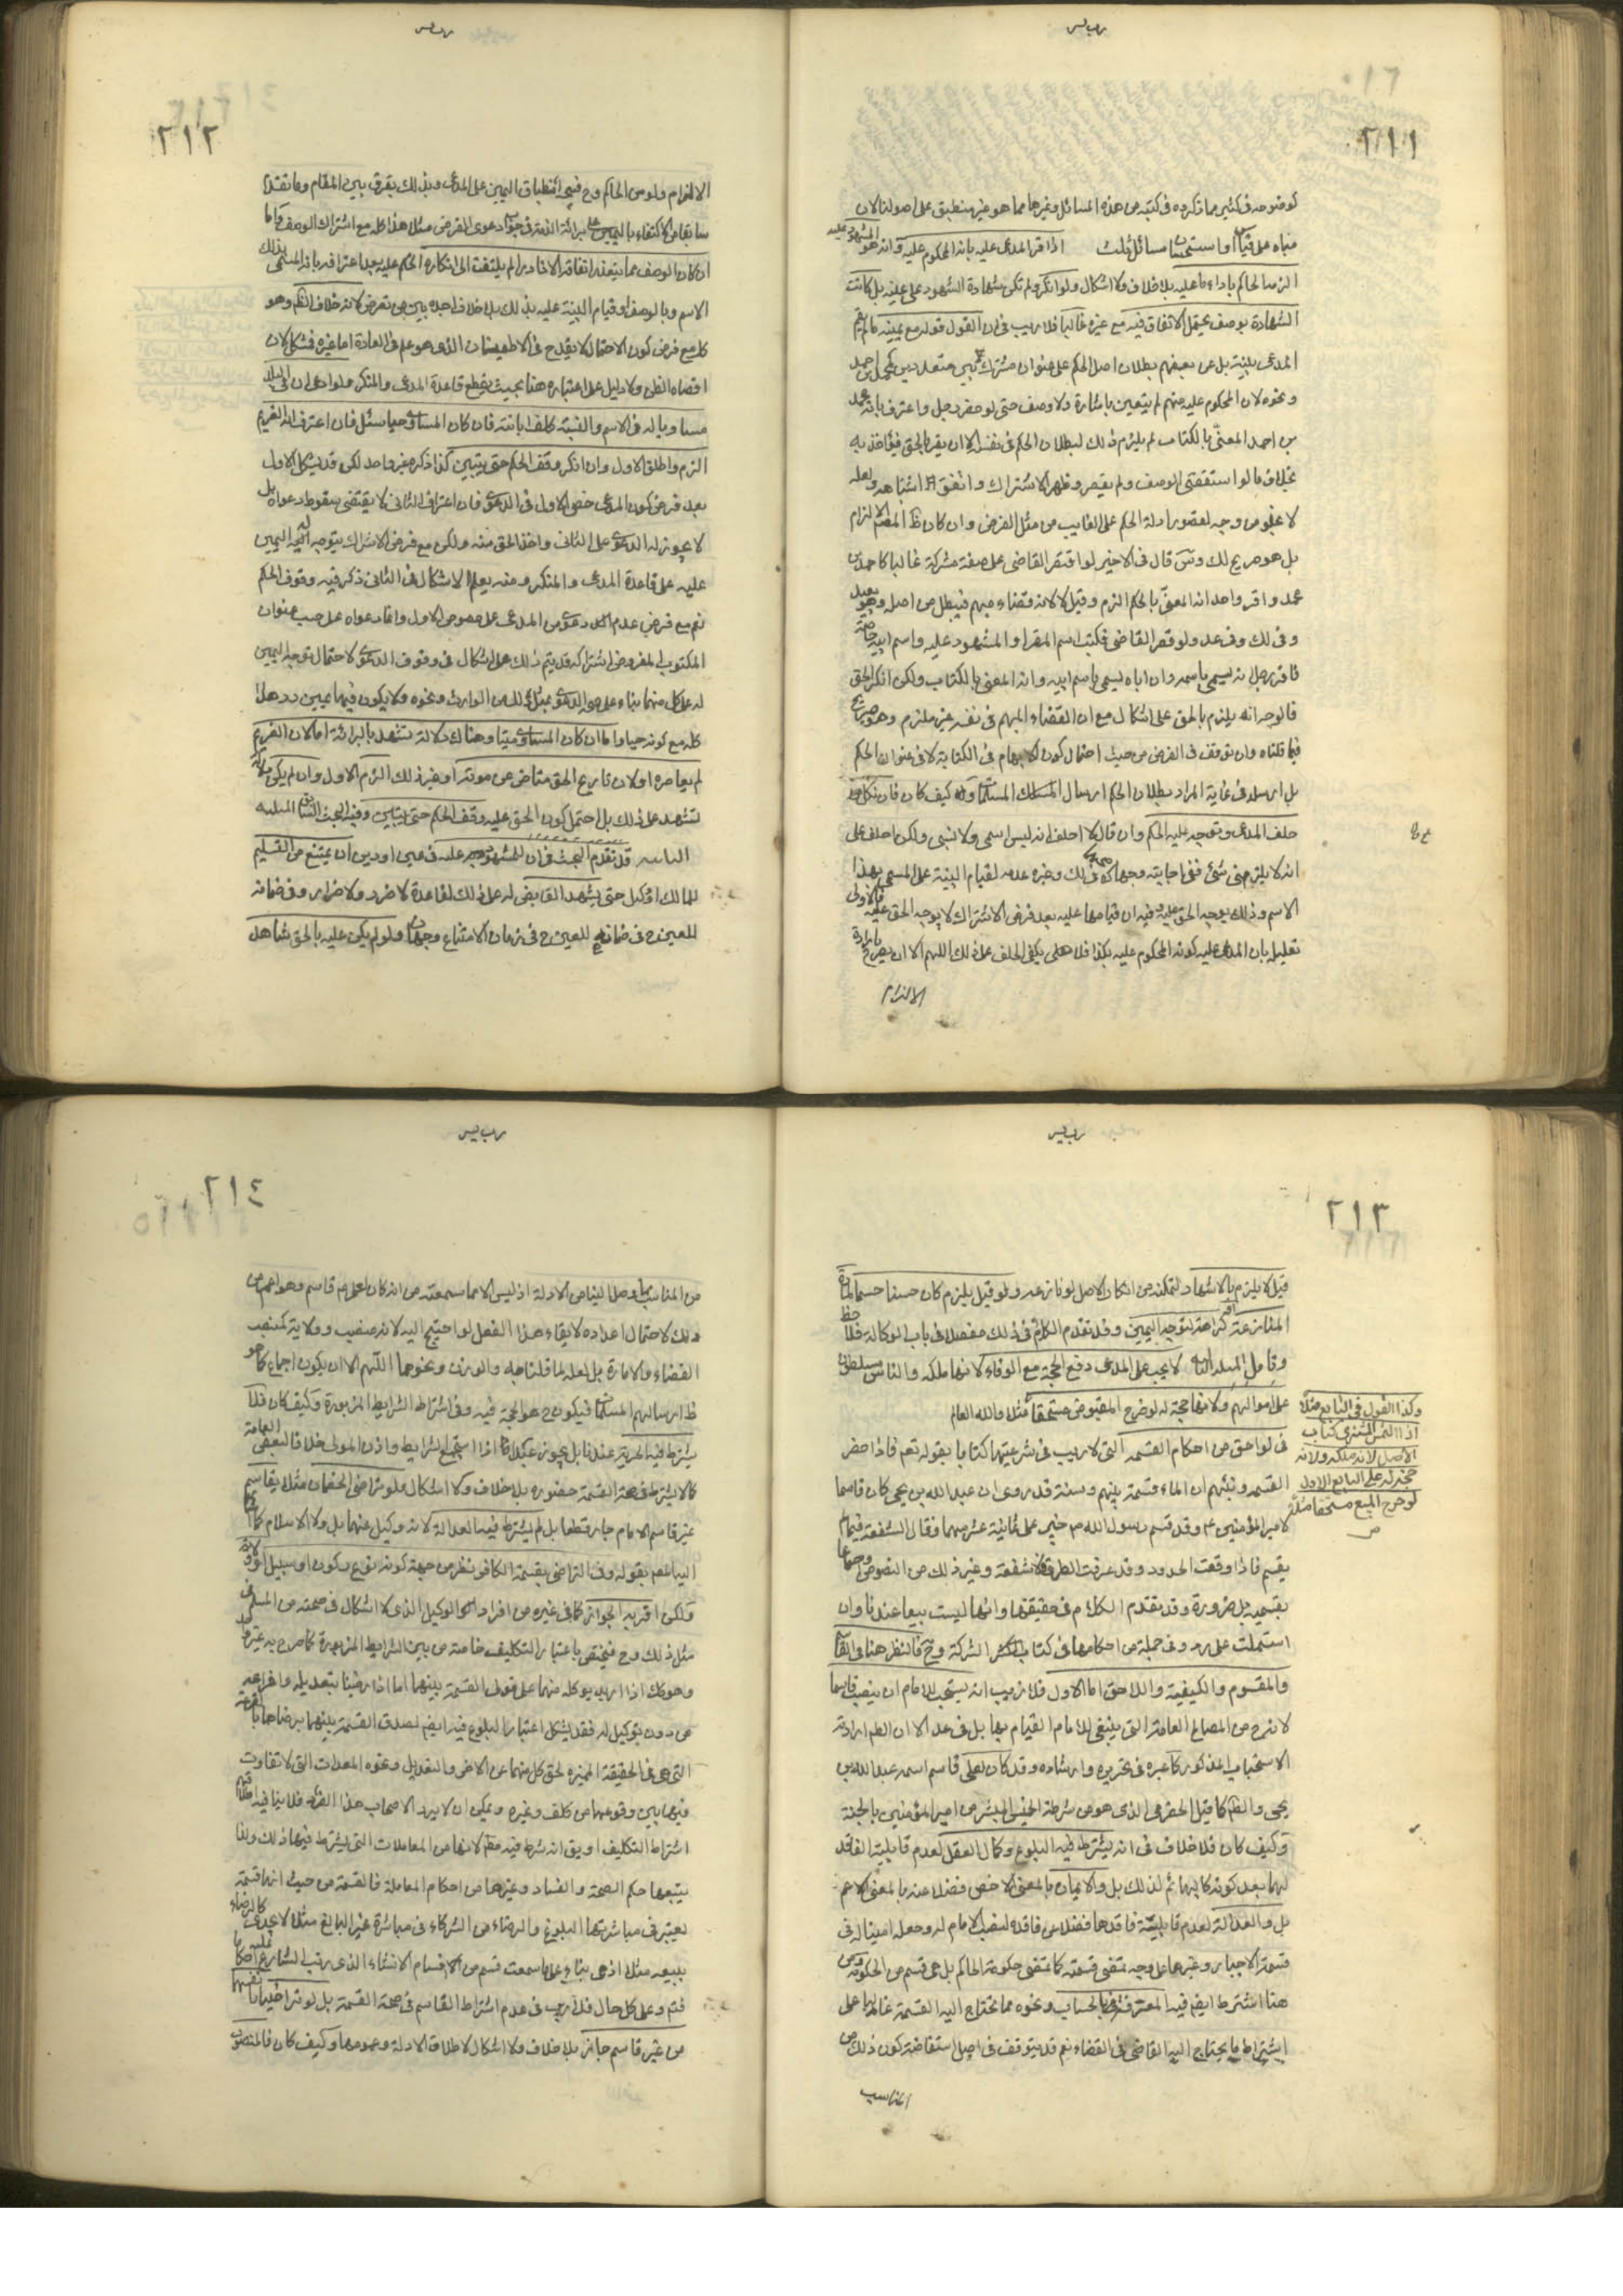 ٢١١
كوضوحه فى كثير مما ذكروه فى كتبهم من هذه المسائل وغيرها مما هو غير منطبق على اصولنا لان
مبناه على قياس او استحسان مسائل ثلث اذا اقر المدعى عليه بانه المحكوم عليه وانه هو المشهود عليه
الزمه الحاكم باداء ما عليه بلا خلاف ولا اشكال ولو انكر ولم تكن شهادة الشهود على عينه بل كانت
الشهادة بوصف يحتمل الاتفاق فيه مع غيره غالبا فلا ريب فى ان القول قوله مع يمينه ما لم يقم
المدعى بينة بل عن بعضهم بطلان اصل الحكم على عنوان مشترك بين متعددين كمحمد بن احمد
ونحوه لان المحكوم عليه منهم لم يتعين باشارة ولا وصف حتى لو حضر رجل واعترف بانه محمد
بن احمد المعنى بالكتاب لم يلزم ذلك لبطلان الحكم فى نفسه الا ان يقر بالحق فيؤاخذ به
بخلاف ما لو استقصى الوصف ولم يقصر وظهر الاشتراك واتفق اشتباهه ولعله
لا يخلو من وجه لقصور ادلة الحكم على الغايب من مثل الفرض وان كان الالزام
بل هو صريح قال فى الاخير لو اقتصر القاضى على صفة مشركة غالبا كاحمد بن
محمد واقر واحد انه المعنى بالحكم الزم وقيل لا لانه قضاء مبهم فيبطل من اصله وهو بعيد
وفى لك وفى عد ولو قصر القاضى فكتب اسم المقر او المشهود عليه واسم ابيه خاصة
فاقر رجل انه يسمى باسمه وان اباه يسمى باسم ابيه وانه المعنى بالكتاب ولكن انكر الحق
فالوجه انه يلزم بالحق على اشكال مع ان القضاء المبهم فى نفسه غير ملزم وهو صريح
فيما قلناه وان توقف فى الفرض من حيث احتمال كون الابهام فى الكتابة لا فى عنوان الحكم
بل ارسله فى غاية المراد بطلان الحكم ارسال المسلمات وكيف كان فان نكل
حلف المدعى وتوجه عليه الحكم وان قال لا احلف انه ليس اسمى ولا نسبى ولكن احلف على
انه لا يلزمنى شئ ففى اجابته وجهان فى لك وغيره عدمه لقيام البينة على المسمى بهذا
الاسم وذلك يوجب الحق عليه وفيه ان قيامها عليه بعد فرض الاشتراك لا يوجب الحق عليه فالاولى
تعليله بان المدعى عليه كونه المحكوم عليه بكذا فلا يكفى الحلف على ذلك اللهم الا ان
الالتزام
٢١٢
الالزام ولو من الحاكم وح فيتجه انطباق اليمين على المدعى وبذلك يفرق بين المقام وما تقدم
سابقا من الاكتفاء باليمين على برائة الذمة فى جواب دعوى القرض مثلا هذا كله مع اشتراك الوصف واما
ان كان الوصف مما يتعذر اتفاقه الا نادرا لم يلتفت الى انكاره الحكم عليه بعد اعترافه بانه المسمى بذلك
الاسم وبالوصف او قيام البينة عليه بذلك بلا خلاف اجده بين من تعرض له لانه خلاف الظاهر وهو
كله مع فرض كون الاحتمال لا يقدح فى الاطمينان الذى هو علم فى العادة اما غيره فمشكل لان
اقصاه الظن ولا دليل على اعتباره هنا بحيث يقطع قاعدة المدعى والمنكر ولو ادعى ان فى البلد
مساويا له فى الاسم والنسبة كلف ابانته فان كان المساوى حيا سئل فان اعترف انه الغريم
الزم واطلق الاول وان انكر وقف الحكم حتى يتبين كذا ذكره غير واحد لكن قد يشكل الاول
بعد فرض كون المدعى خص الاول فى الدعوى فان اعتراف الثانى لا يقتضى سقوط دعواه بل
لا يجوز له الدعوى على الثانى واخذ الحق منه ولكن مع فرض الاشتراك يتوجه له اليمين
عليه على قاعدة المدعى والمنكر ومنه يعلم الاشكال فى الثانى ذكر فيه وقوف الحكم
نعم مع فرض عدم دعوى من المدعى على خصوص الاول وانما دعواه على حسب عنوان
المكتوب المفروض اشتراكه قد يتم ذلك على اشكال فى وقوف الدعوى لاحتمال توجه اليمين
له على كل منهما بناء على صحة الدعوى بمثل ذلك من الوارث ونحوه ولا يكون فيهما عيبين ردد هذا
كله مع كونه حيا واما ان كان المساوى ميتا وهناك دلالة تشهد بالبرائة اما لان الغريم
لم يعاصره او لان تاريخ الحق متاخر عن موته او غير ذلك الزم الاول وان لم يكن دلالة
تشهد على ذلك بل احتمل كون الحق عليه وقف الحكم حتى يتبين وفيه البحث السابق المسئلة
الثانية قد تقدم البحث فى ان للمشهود عليه فى عين او دين ان يمتنع من التسليم
للمالك او وكيل حتى يشهد القابض له على ذلك لقاعدة لا ضرر ولا ضرار وفى ضمانه
للعين ح فى زمان الامتناع وجهان ولو لم يكن عليه بالحق شاهد
٢١٣
قيل لا يلزم بالاشهاد لتمكنه من انكار الاصل لو نازعه ولو قيل يلزم كان حسنا حسما لمادة
المنازعة او كراهة لتوجه اليمين وقد تقدم الكلام فى ذلك مفصلا فى باب الوكالة فلاحظ
وتامل المسئلة الثالثة لا يجب على المدعى دفع الحجة مع الوفاء لانها ملكه والناس مسلطون
على اموالهم ولانها حجة له لو خرج المقبوض مستحقا مثلا والله العالم
وكذا القول فى البايع مثلا
اذا التمس المشترى كتاب
الاصل لانه ملكه ولانه
حجة له على البايع الاول
لو خرج المبيع مستحقا مثلا
فى لواحق من احكام القسمة التى لا ريب فى شرعيتها كتابا بقوله تعم فاذا حضر
القسمة ونبئهم ان الماء قسمة بينهم وسنة قد روى ان عبد الله بن يحيى كان قاسما
لامير المؤمنين ع وقد قسم رسول الله ص خيبر على ثمانية عشر سهما وقال الشفعة فيما لم
يقسم فاذا وقعت الحدود وقد عرفت الطرق فلا شفعة وغير ذلك من النصوص واجماعا
بقسميه بل ضرورة وقد تقدم الكلام فى حقيقتها وانها ليست بيعا عندنا وان
اشتملت على رد وفى جملة من احكامها فى كتاب الشركة وح فالنظر هنا فى القاسم
والمقسوم والكيفية واللاحق اما الاول فلا ريب انه يستحب للامام ان ينصب قاسما
لانه من المصالح العامة التى ينبغى للامام القيام بها بل فى عد الا ان الظاهر ارادته
الاستحباب المذكور كما عبر به فى تحريره وارشاده وقد كان لعلى ع قاسم اسمه عبد الله بن
يحيى والظاهر كما قيل الحضرمى الذى هو من شرطة الخميس المبشر من امير المؤمنين بالجنة
وكيف كان فلا خلاف فى انه يشترط فيه البلوغ وكمال العقل لعدم قابلية الفاقد
لهما بعد كونه لذلك بل والايمان بالمعنى الاخص فضلا عنه بالمعنى الاعم
بل والعدالة لعدم قابلية فاقدها فضلا عن فاقده لنصب الامام له وجعله امينا له فى
قسمة الاجبار وغيرها على وجه تمضى قسمته كما تمضى حكومة الحاكم بل هى قسم من الحكومة ومن
هنا اشترط ايضم فيه المعرفة بالحساب ونحوه مما تحتاج اليه القسمة غالبا على
اشتراط ما يحتاج اليه القاضى فى القضاء نعم قد يتوقف فى اصل استفاضة كون ذلك من
المناسب
٢١٤
من المناسب وصل الينا من الادلة اذ ليس الا ما سمعته من انه كان لعلى ع قاسم وهو اعم من
ذلك لاحتمال اعداده لايقاء هذا الفعل لو احتيج اليه لانه منصب وولاية كمنصب
القضاء والامارة بل لعله لما قلناه والوزن ونحوهما اللهم الا ان يكون اجماع كما هو
ظ ارسالهم المسلمات فيكون ح هو الحجة فيه وفى اشتراط الشرايط المزبورة وكيف كان فلا
يشترط فيه الحرية عندنا بل يجوز عبدا اذا استجمع الشرايط واذن المولى خلافا لبعض العامة
كما لا يشترط فى صحة القسمة حضوره بلا خلاف ولا اشكال فلو تراضى الخصمان مثلا بقاسم
غير قاسم الامام جاز قطعا بل لم يشترط فيه العدالة لانه وكيل عنهما بل ولا الاسلام كما
اليه المصم بقوله وفى التراضى بقسمة الكافر نظر من جهة كونه نوع ركون او سبيل
ولكن اقربه الجواز كما فى غيره من افراد الوكيل الذى لا اشكال فى صحته من المسلم فى
مثل ذلك وح فيختص باعتبار التكليف خاصة من بين الشرايط المزبورة كما صرح به غير واحد
وهو كك اذا اريد توكله منهما على تولى القسمة بينهما اما اذا رضينا بتعديله واقراعه
من دون توكيل له فقد يشكل اعتبار البلوغ فيه ايضم لصدق القسمة بينهما برضاهما بالقرعة
التى هى فى الحقيقة المميزة لحق كل منهما عن الاخر والتعديل ونحوه المعدات التى لا تفاوت
فيها بين وقوعها من مكلف وغيره ويمكن ان لا يريد الاصحاب هذا الفرد فلا ينافيه
اشتراط التكليف او يق انه شرط فيه مطلقا لانها من المعاملات التى يشترط فيها ذلك ولذا
يتبعها حكم الصحة والفساد وغيرها من احكام المعاملة فالقسمة من حيث انها قسمة
يعتبر فى مباشرتها البلوغ والرضاء من الشركاء فى مباشرة غير البالغ مثلا لا يجدى كالرضاء
ببيعه مثلا اذ هى بناء على ما سمعت قسم من اقسام الانشاء الذى رتب الشارع عليها احكاما
فتم وعلى كل حال فلا ريب فى عدم اشتراط القاسم فى صحة القسمة بل لو تراضيا بانفسهما
من غير قاسم جاز بلا خلاف ولا اشكال لاطلاق الادلة وعمومها وكيف كان فالمنصوب